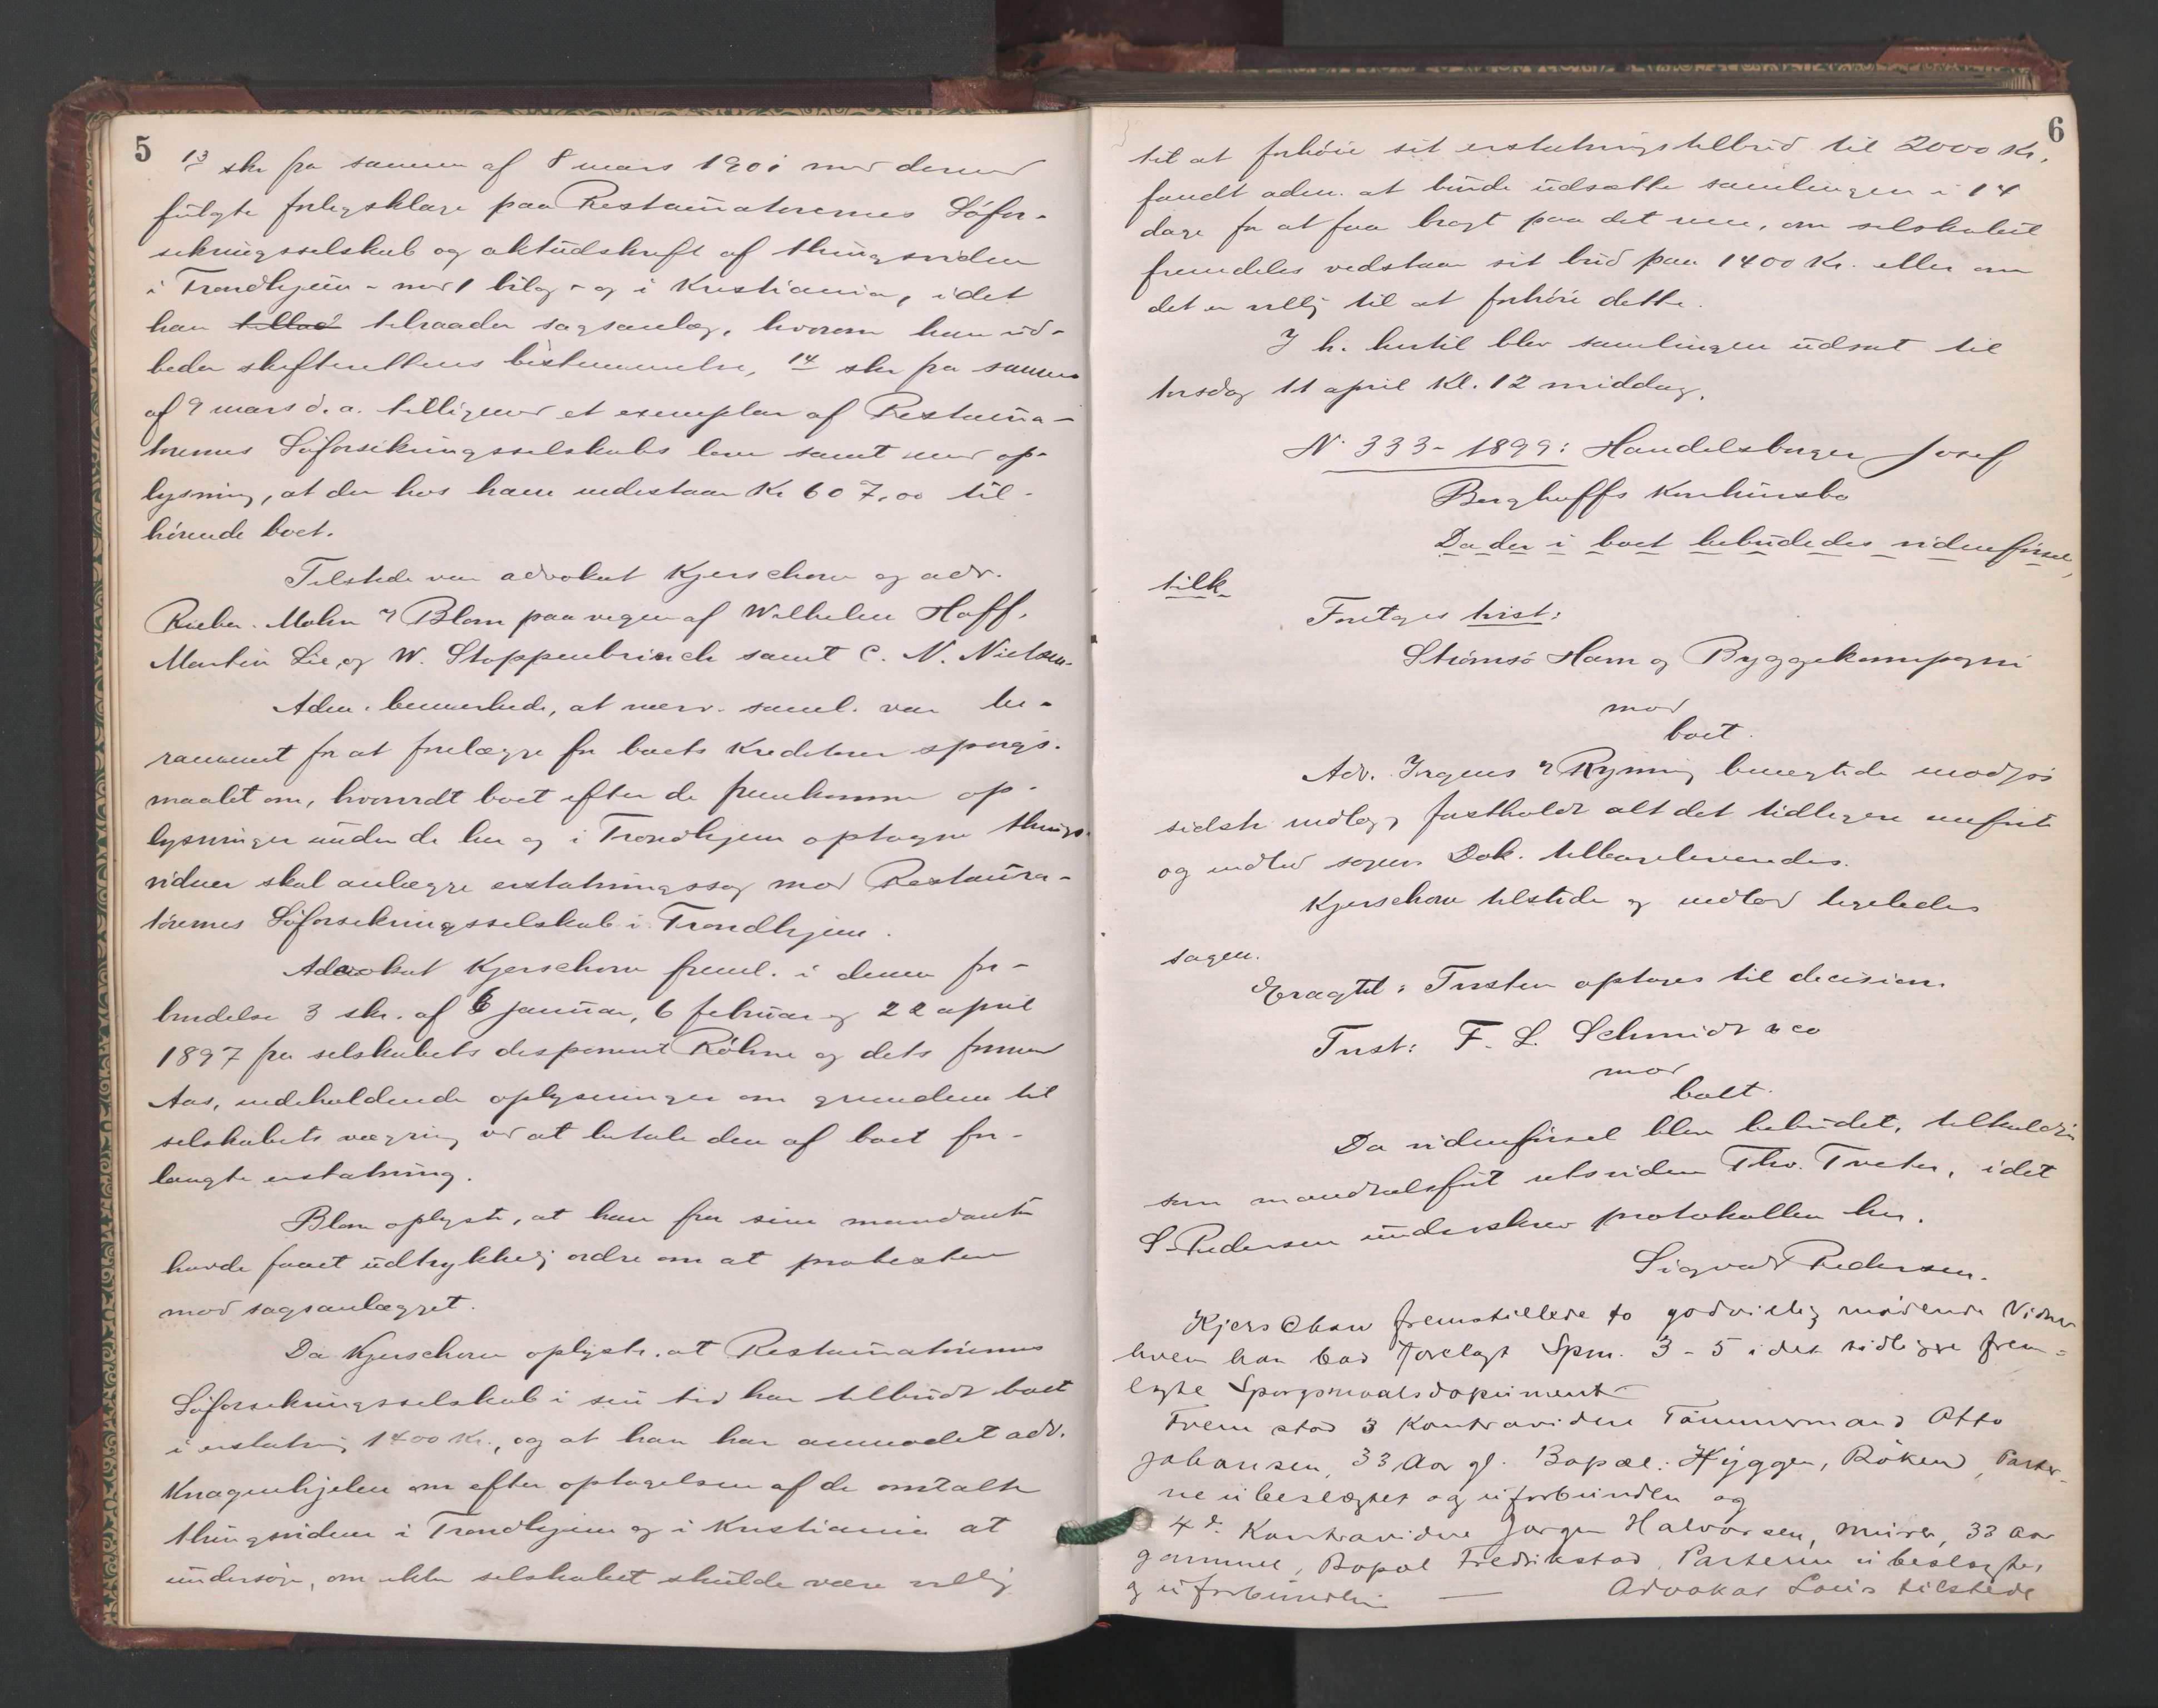 5
13 skr fra samme af 8 mars 1901 med derved
fulgte forligsklage paa Restauratørernes Søfor-
sikringsselskab og aktudskrift af thingsviden
i Trondhjem - med 1 bilag - og i Kristiania, idet
han tillod tilraader sagsanlæg, hvorom han ud-
beder skifterettens bestemmelse, 14 skr fra samme
af 9 mars d. a. tilligemed et exemplar af Restaura-
tørernes Søforsikringsselskabs love samt med op-
lysning, at der hos ham indestaar Kr 607,00 til-
hørende boet.
Tilstede var advokat Kjerschow og adv.
Rieber-Mohn v Blom paa vegne af Wilhelm Hoff,
Martin Lie og W. Stoppenbrinck samt C. N. Nielsen.
Adm. bemærkede, at nærv. saml. var be-
rammet for at forelægge for boets kreditorer spørgs-
maalet om, hvorvidt boet efter de fremkomne op-
lysninger under de her og i Trondhjem optagne things-
vidner skal anlægge erstatningssag mod Restaura-
tørernes Søforsikringsselskab i Trondhjem.
Advokat Kjerschow freml. i denne for-
bindelse 3 skr. af 6 januar, 6 februar og 22 april
1897 fra selskabets disponent Röhne og dets formand
Aas, indeholdende oplysninger om grundene til
selskabets vægring ved at betale den af boet for-
langte erstatning.
Blom oplyste, at han fra sine mandanter
havde faaet udtrykkelig ordre om at protestere
mod sagsanlægget.
Da Kjerschow oplyste, at Restauratørernes
Søforsikringsselskab i sin tid har tilbudt boet
i erstatning 1400 Kr., og at han har anmodet adv.
Knagenhjelm om efter optagelsen af de omtalte
thingsvidner i Trondhjem og i Kristiania at
undersøge, om ikke selskabet skulde være villig
6
til at forhøie sit erstatningstilbud til 2000 Kr,
fandt adm. at burde udsætte samlingen i 14
dage for at faa bragt paa det rene, om selskabet
fremdeles vedstaar sit bud paa 1400 Kr. eller om
det er villig til at forhøie dette.
I h. hertil blev samlingen udsat til
torsdag 11 april Kl. 12 middag.
N. 333-1899: Handelsborger Josef
Berghoffs konkursbo
Da der i boet bebudedes vidneførsel,
tilk.
Foretoges tvist:
Strømsø Ham og Byggekompagni
mod
boet.
Adv. Irgens v Ryning benegtede modp's
sidste indlæg, fastholdt alt det tidligere anførte
og indlod sagen. Dok. tilbageleverendes.
Kjerschow tilstede og indlod ligeledes
sagen.
Eragtet: Tvisten optages til decision.
Tvist: F. L. Schmidt & co
mod
boet.
Da vidneførsel blev bebudet, tilkaldtes
som mandtalsført retsvidne Thv. Tveter, idet
S. Pedersen underskrev protokollen her.
Sigvard Pedersen.
Kjerschow fremstillede to godvillig mødende Vidner
hvem han bad forelagt Spm. 3-5 i det tidligere frem-
lagte Spørgsmaalsdokument
Frem stod 3 Kontravidne Tømmermand Otto
Johansen, 33 Aar gl. Bopæl: Hyggen, Røken, Parter-
ne ubeslægtet og uforbunden og
4de Kontravidne Jørgen Halvorsen, murer, 33 Aar
gammel, Bopæl Fredrikstad, Parterne ubeslægtet
og uforbunden — Advokat Louis tilstede